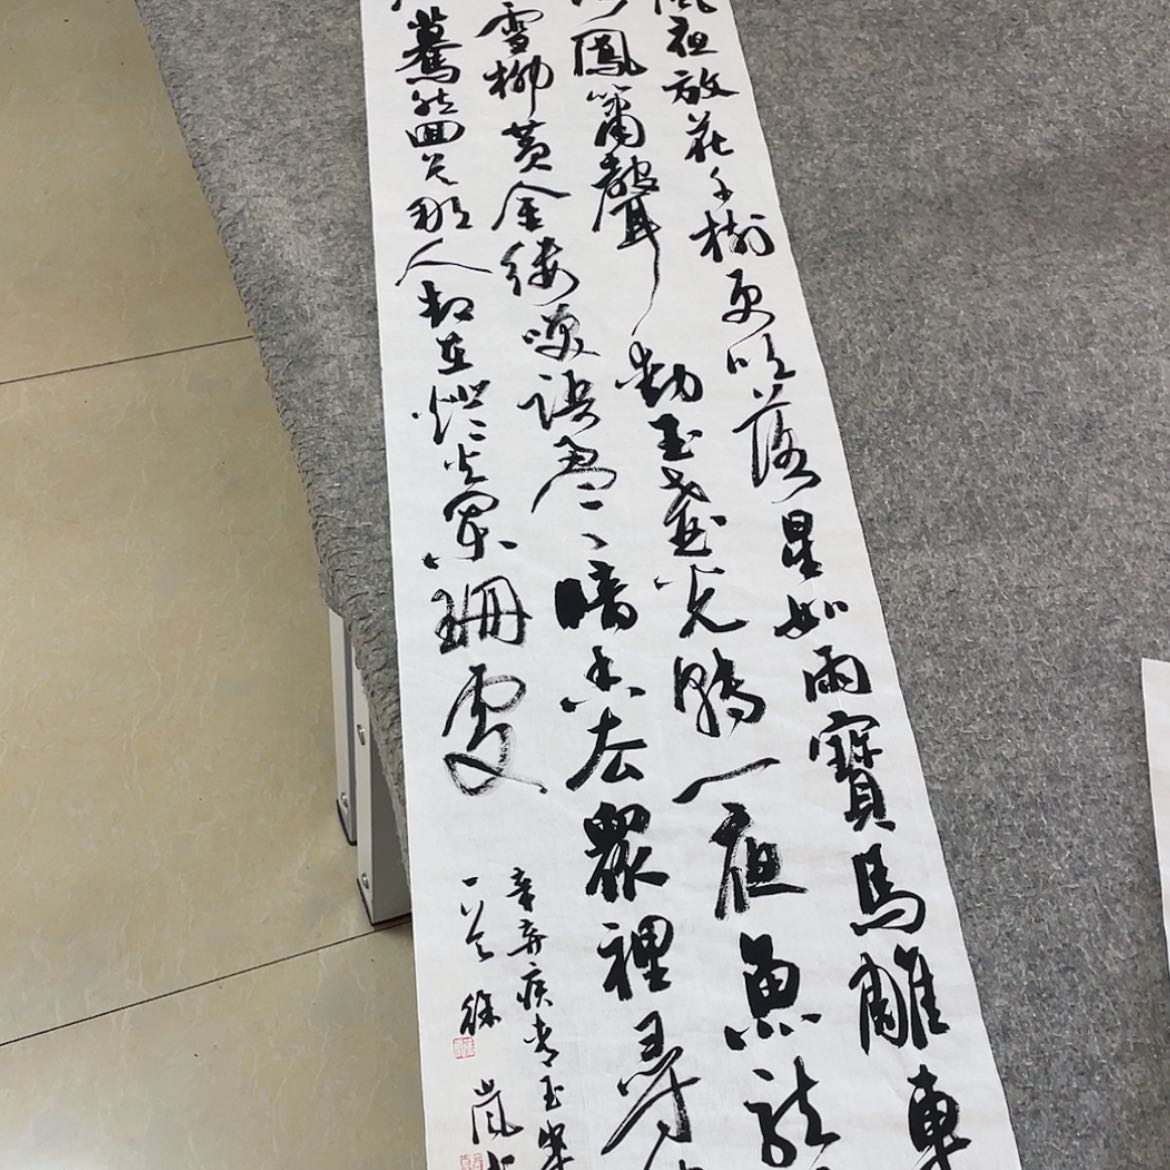 風夜放花千樹更吹落星如雨寶馬雕車
鳳簫聲動玉壺光轉一夜魚龍
雪柳黃金縷笑語盈〻暗香去眾裡尋
驀然回首那人却在燈火闌珊處
辛棄疾青玉案
徐嵐